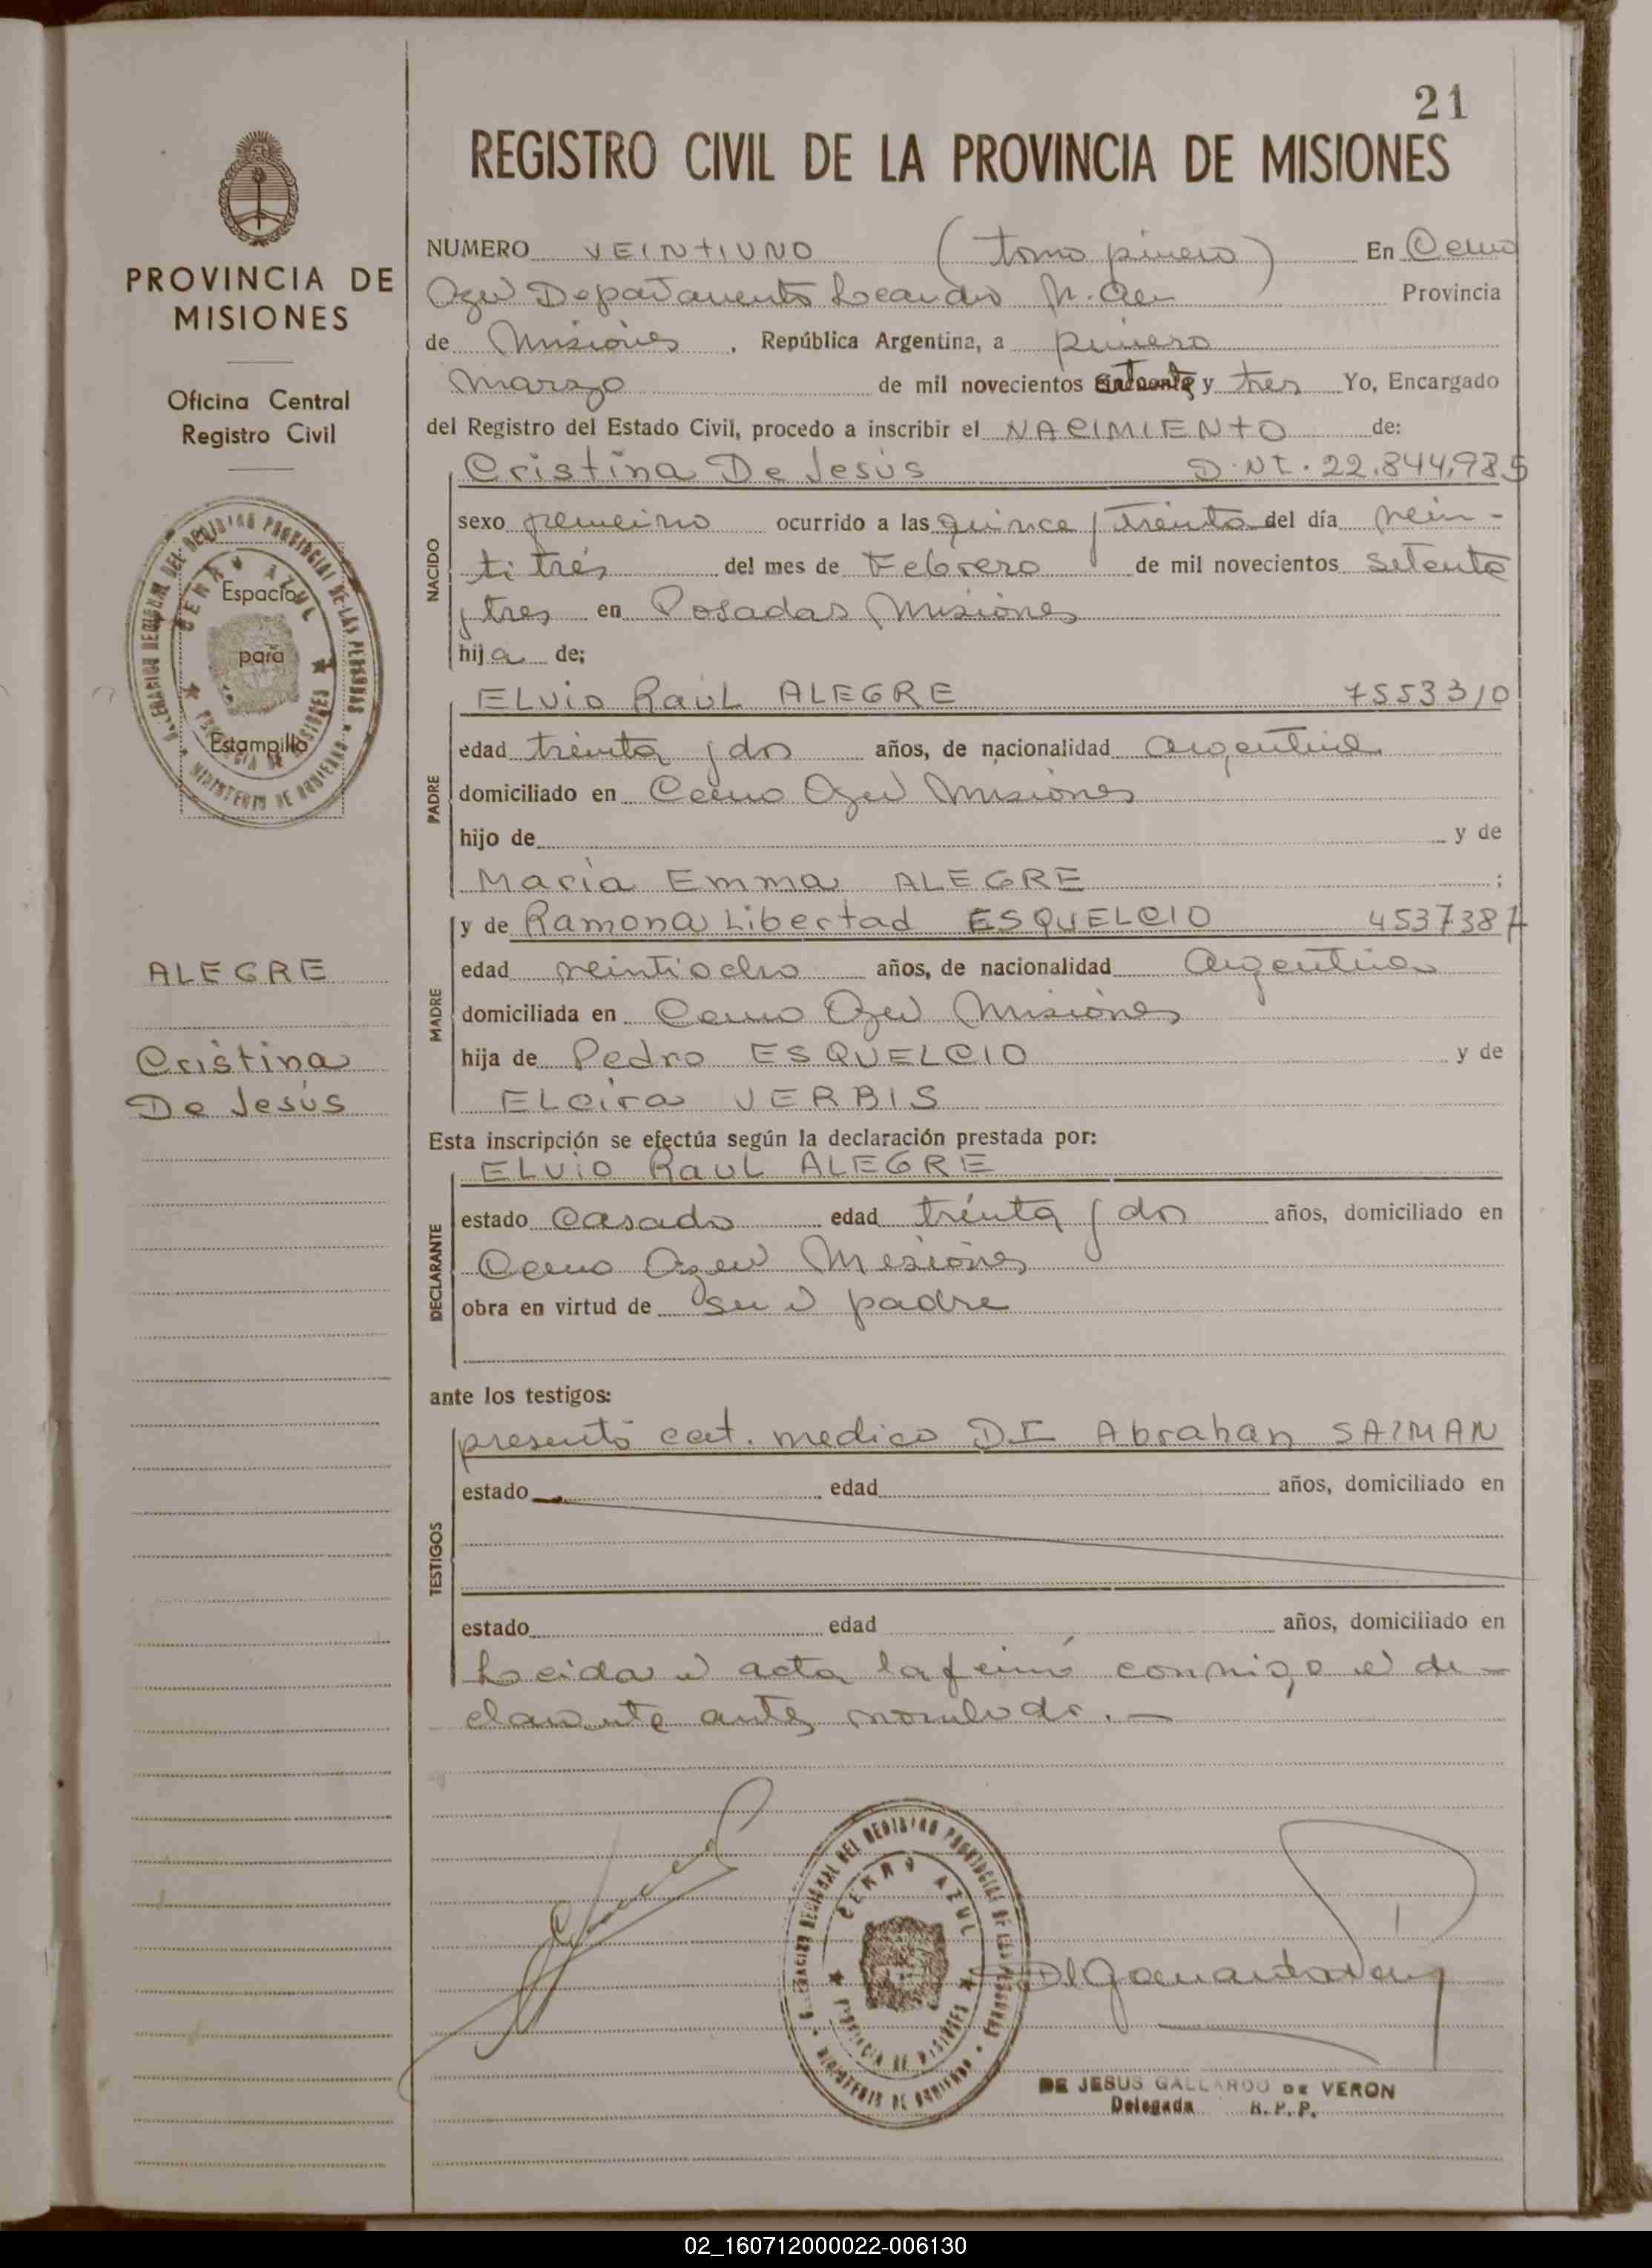 21
REGISTRO CIVIL DE LA PROVINCIA DE MISIONES
PROVINCIA DE
MISIONES
Oficina Central
Registro Civil
Espacio
para
Estampilla
CERRO AZUL
ALEGRE
Cristina
De Jesús
NUMERO VEINTIUNO (tomo primero) En Cerro
Azul Departamento Leandro N. Alem Provincia
de Misiones, República Argentina, a primero
marzo de mil novecientos setenta y tres Yo, Encargado
del Registro del Estado Civil, procedo a inscribir el NACIMIENTO de:
Cristina De Jesús D.NI. 22.844,985
NACIDO
sexo femenino ocurrido a las quince y treinta del día vein-
titrés del mes de Febrero de mil novecientos setenta
y tres en Posadas Misiones
hija de;
ELViO RaúL ALEGRE 7553310
PADRE
edad treinta y dos años, de nacionalidad argentina
domiciliado en Cerro Azul Misiones
hijo de y de
María Emma ALEGRE ;
y de Ramona Libertad ESQUELCIO 4537387
MADRE
edad veintiocho años, de nacionalidad argentina
domiciliada en Cerro Azul Misiones
hija de Pedro ESQUELCIO y de
ELcira VERBIS
Esta inscripción se efectúa según la declaración prestada por:
ELViO RauL ALEGRE
DECLARANTE
estado casado edad treinta y dos años, domiciliado en
Cerro Azul Misiones
obra en virtud de ser el padre
ante los testigos:
TESTIGOS
presentó cert. medico DI Abrahan SAIMAN
estado edad años, domiciliado en
estado edad años, domiciliado en
Leida el acta la firmó conmigo el de-
clarante ante nombrado.
CERRO AZUL
DE JESUS GALLARDO DE VERON
Delegada R. P. P.
02_160712000022-006130